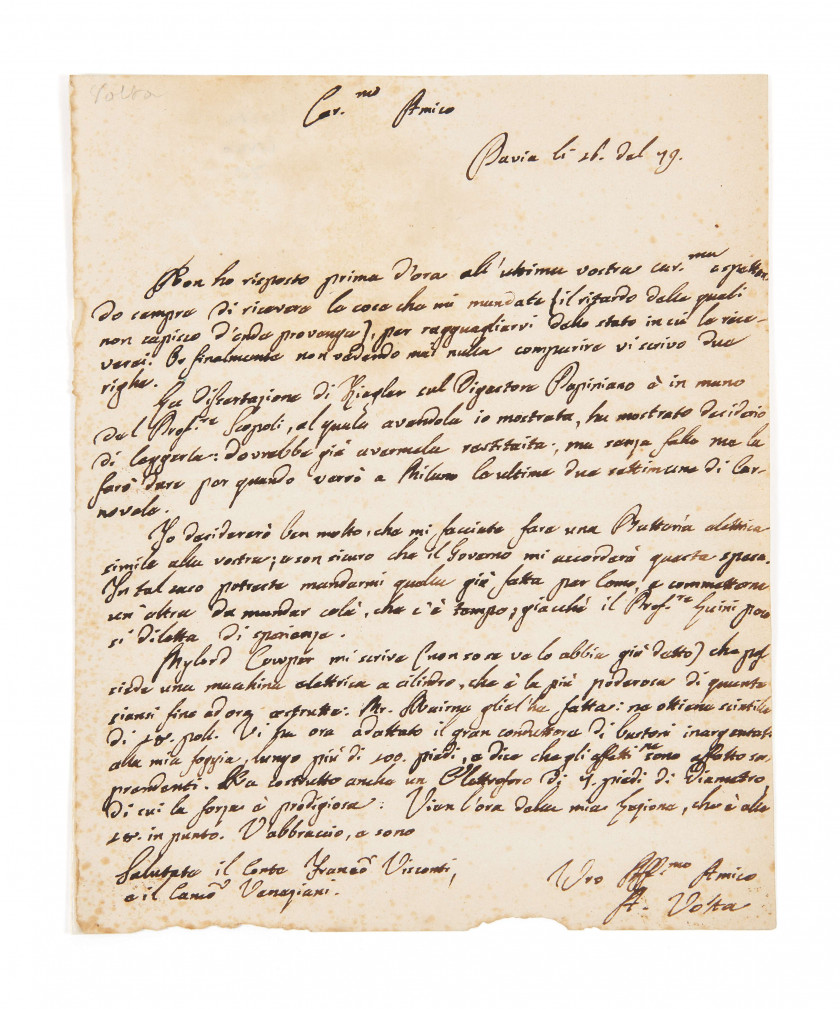 Volta
Car.mo Amico
Pavia li 26. del 79.
Non ho risposto prima d'ora all'ultima vostra car.ma aspettan-
do sempre di ricevere le cose che mi mandate (il ritardo delle quali
non capisco d'onde provenga), per ragguagliarvi dello stato in cui le rice-
verei. Or finalmente non vedendo mai nulla comparire vi scrivo due
righe.
La dissertazione di Ziegler sul Digestore Papiniano è in mano
del Prof.re Scopoli, al quale avendola io mostrata, ha mostrato desiderio
di leggerla: dovrebbe già avermela restituita; ma senza fallo me la
farò dare per quando verrò a Milano le ultime due settimane di Car-
novale.
Io desidererò ben molto, che mi facciate fare una Batteria elettrica
simile alla vostra; e son sicuro che il Governo mi accorderà questa spesa.
In tal caso potreste mandarmi quella già fatta per Como, e commetterne
un'altra da mandar colà, che c'è tempo; giacchè il Prof.re Guini poco
si diletta di sperienze.
Mylord Cowper mi scrive (non so se ve lo abbia già detto) che pos-
siede una macchina elettrica a cilindro, che è la più poderosa di quante
siansi fino ad ora costrutte: Mr. Nairne gliel'ha fatta: ne ottiene scintille
di 18. poll. Vi ha ora adattato il gran conduttore di bastoni inargentati
alla mia foggia, lungo più di 100. piedi, e dice che gli effetti ne sono affatto sor-
prendenti. Ha costrutto anche un Elettroforo di 7. piedi di Diametro,
di cui la forza è prodigiosa: Vien l'ora della mia Lezione, che è alle
18. in punto. V'abbraccio, e sono
Salutate il Conte Franco Visconti,
e il Canco Veneziani.
Vro Aff.mo Amico
A. Volta